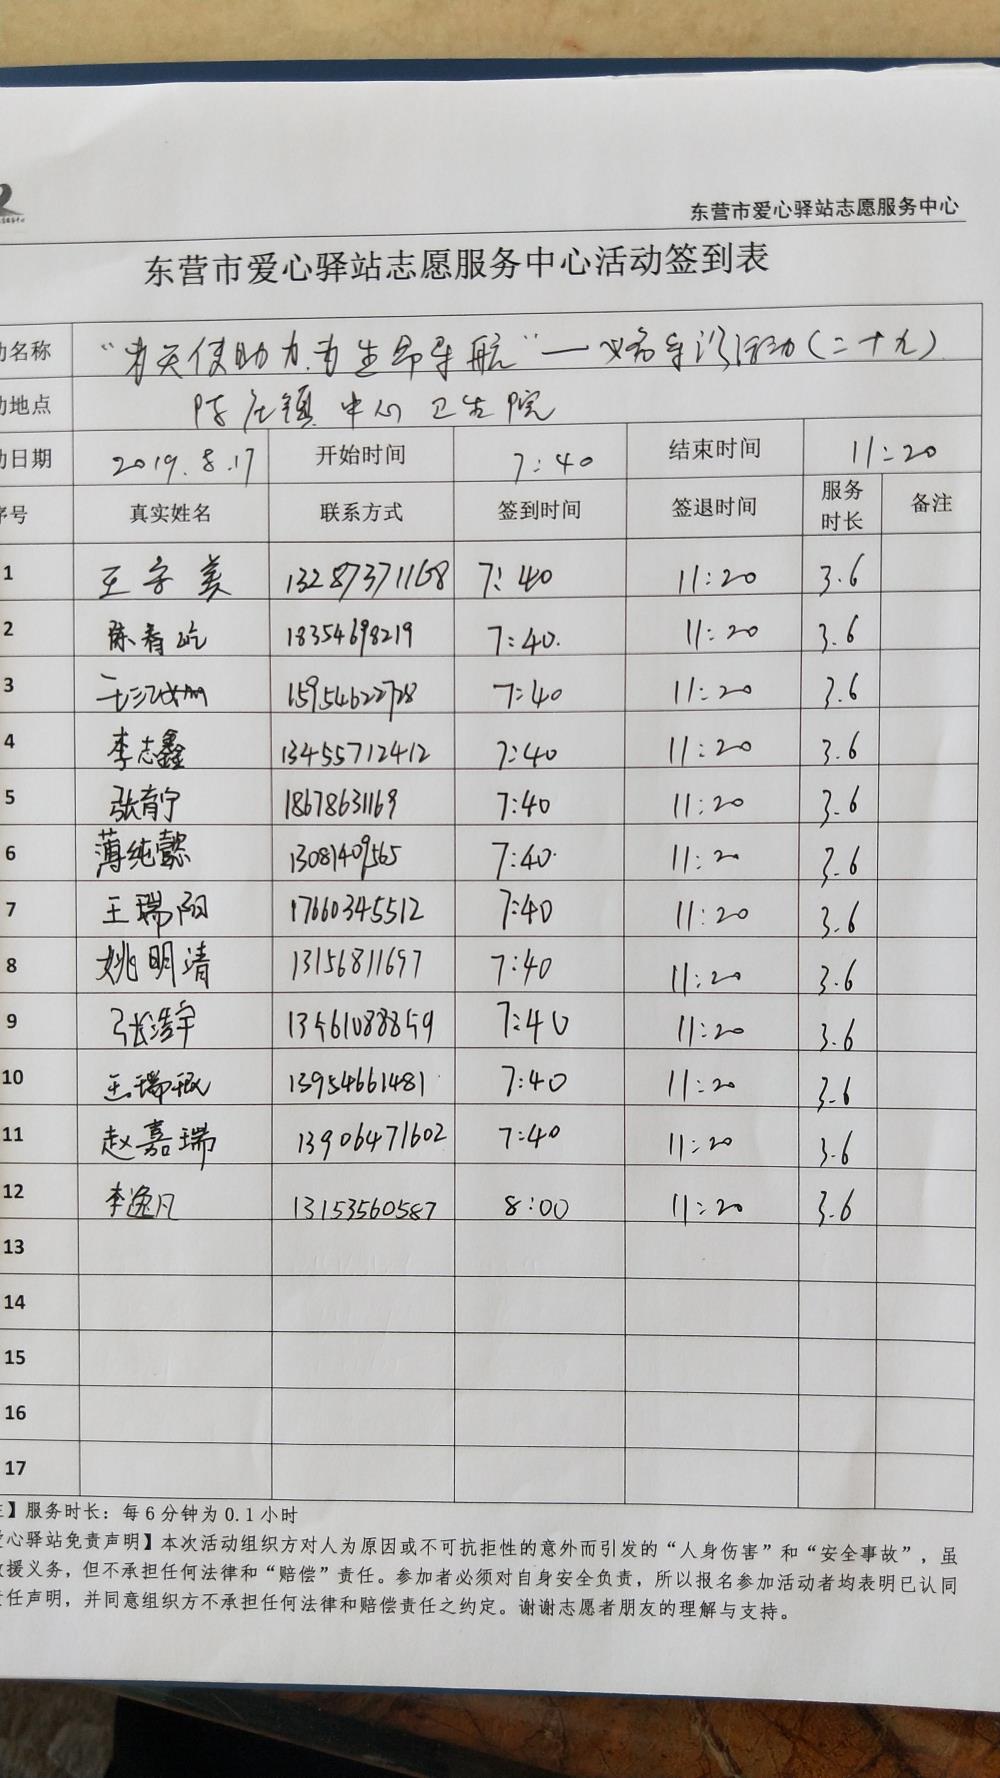 东营市爱心驿站志愿服务中心
东营市爱心驿站志愿服务中心活动签到表
动名称 “为天使助力.为生命导航”—义务导诊活动(二十九)
动地点 陈庄镇中心卫生院
动日期 2019.8.17 开始时间 7:40 结束时间 11:20
序号 真实姓名 联系方式 签到时间 签退时间 服务时长 备注
1 王字美 13287371168 7:40 11:20 3.6
2 陈春屹 18354698219 7:40. 11:20 3.6
3 15954622728 7:40 11:20 3.6
4 李志鑫 13455712412 7:40 11:20 3.6
5 张育宁 18678631169 7:40 11:20 3.6
6 薄纯懿 13081409565 7:40. 11:20 3.6
7 王瑞阳 17660345512 7:40 11:20 3.6
8 姚明清 13156811697 7:40 11:20 3.6
9 张浩宇 13561088859 7:40 11:20 3.6
10 王瑞 13954661481 7:40 11:20 3.6
11 赵嘉瑞 13906471602 7:40 11:20 3.6
12 李逸凡 13153560587 8:00 11:20 3.6
13
14
15
16
17
】服务时长：每6分钟为0.1小时
心驿站免责声明】本次活动组织方对人为原因或不可抗拒性的意外而引发的“人身伤害”和“安全事故”，虽
援义务，但不承担任何法律和“赔偿”责任。参加者必须对自身安全负责，所以报名参加活动者均表明已认同
任声明，并同意组织方不承担任何法律和赔偿责任之约定。谢谢志愿者朋友的理解与支持。